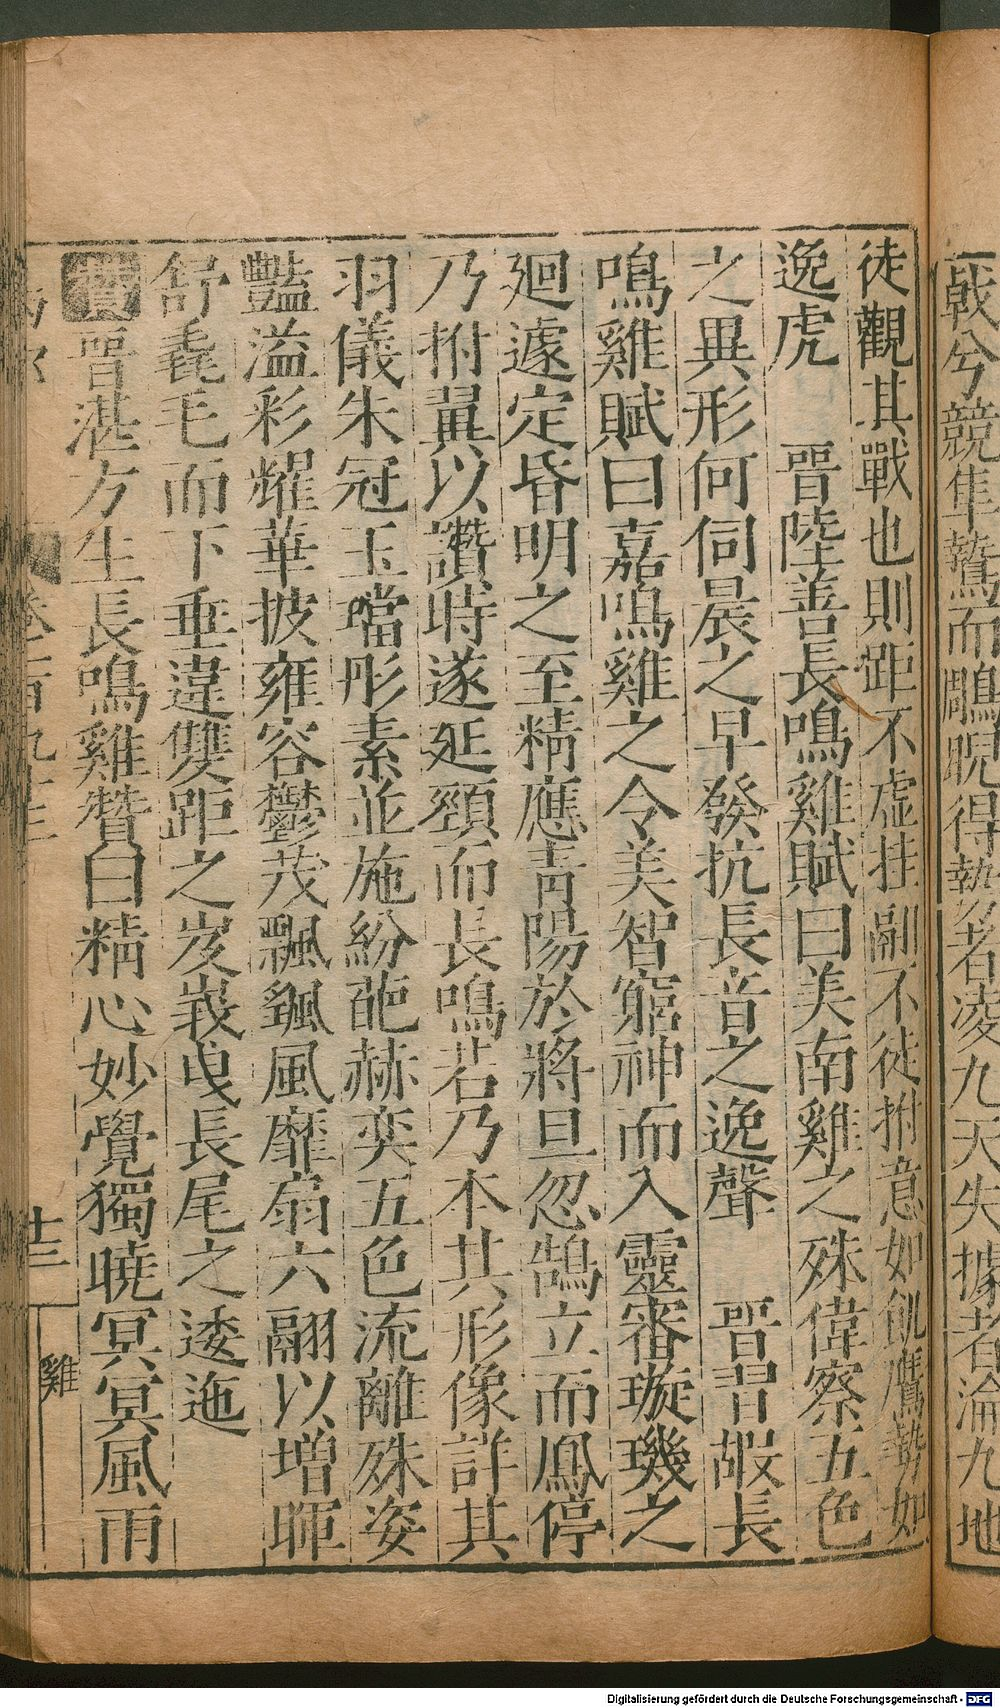 戟兮競隼鷙而鵰睨得勢者凌九天失據者淪九地
徒觀其戰也則距不虛挂翮不徒拊意如飢鷹勢如
逸虎　晉陸善長鳴雞賦曰美南雞之殊偉察五色
之異形何伺晨之早發抗長音之逸聲　晉習嘏長
鳴雞賦曰嘉鳴雞之令美智窮神而入靈審璇璣之
廻遽定昏明之至精應青陽於將旦忽鵠立而鳳停
乃拊翼以讚時遂延頸而長鳴若乃本其形像詳其
羽儀朱冠玉璫彤素並施紛葩赫奕五色流離殊姿
豔溢彩耀華披雍容鬱茂飄颻風靡扇六翮以增暉
舒毳毛而下垂違雙距之岌峩曳長尾之逶迤
贊晉湛方生長鳴雞贊曰精心妙覺獨曉冥冥風雨
卷一百九十三
十三
雞
Digitalisierung gefördert durch die Deutsche Forschungsgemeinschaft - DFG